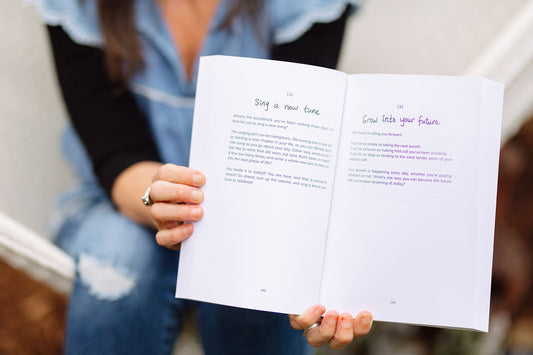 131
Sing a new tune
What's the soundtrack you've been
time for you to sing a new song?
The singing part can be metaphoric, like turning over a new leaf
or starting a new chapter in your life, or you can literally
into song as you go about your day. Either way,
feel like to retire that old worn out tune that's been on repeat
a few too many times, and write a whole new part to take you
into the next phase of life?
You made it to today! You are here, and that is worthy
Go ahead, turn up the volume, and sing a
tune to celebrate!
132
Grow into your future
Your future is calling you forward.
It can be as simple as taking the next breath.
It can be as brave as making that call you've been avoiding.
It can be as deep as tending to the most tender parts of your
precious self.
Your growth is happening every day, whether you're paying
attention or not. What's one way you can become the future
self you've been dreaming of today?